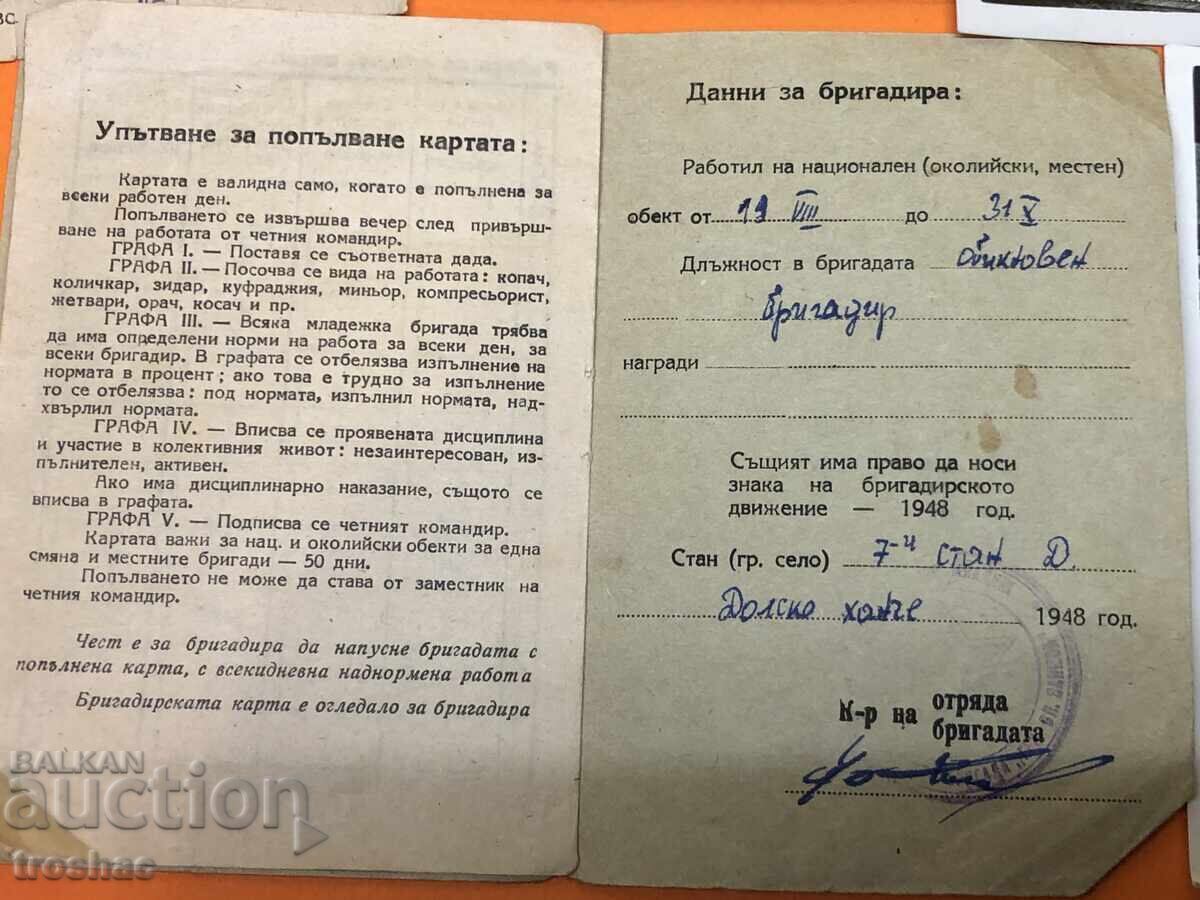 ВС.
Упътване за попълване картата:
Картата е валидна само, когато е попълнена за
всеки работен ден.
Попълването се извършва вечер след привърш-
ване на работата от четния командир.
ГРАФА I. — Поставя се съответната дада.
ГРАФА II. — Посочва се вида на работата: копач,
количкар, зидар, куфраджия, миньор, компресьорист,
жетвари, орач, косач и пр.
ГРАФА III. — Всяка младежка бригада трябва
да има определени норми на работа за всеки ден, за
всеки бригадир. В графата се отбелязва изпълнение на
нормата в процент; ако това е трудно за изпълнение
то се отбелязва: под нормата, изпълнил нормата, над-
хвърлил нормата.
ГРАФА IV. — Вписва се проявената дисциплина
и участие в колективния живот: незаинтересован, из-
пълнителен, активен.
Ако има дисциплинарно наказание, същото се
вписва в графата.
ГРАФА V. — Подписва се четният командир.
Картата важи за нац. и околийски обекти за една
смяна и местните бригади — 50 дни.
Попълването не може да става от заместник на
четния командир.
Чест е за бригадира да напусне бригадата с
попълнена карта, с всекидневна наднормена работа
Бригадирската карта е огледало за бригадира
Данни за бригадира:
Работил на национален (околийски, местен)
обект от 19 VIII до 31 X
Длъжност в бригадата обикновен
бригадир
награди
Същият има право да носи
знака на бригадирското
движение — 1948 год.
Стан (гр. село) 7-и стан Д.
Долско ханче 1948 год.
К-р на отряда
бригадата
BALKAN
auction
troshac